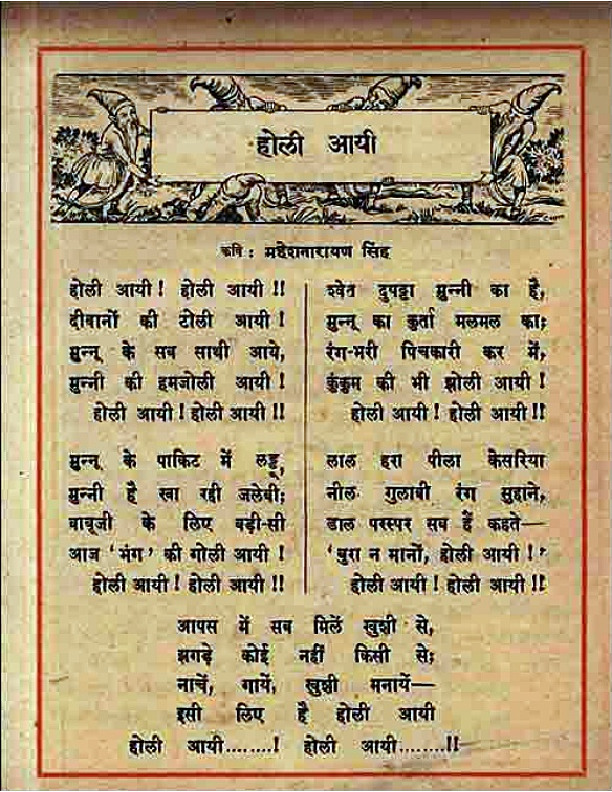 होली आयी
कवि : महेशनारायण सिंह
होली आयी ! होली आयी !!
दीवानों की टोली आयी !
मुन्नू के सब साथी आये,
मुन्नी की हमजोली आयी !
होली आयी ! होली आयी !!
मुन्नू के पाकिट में लड्डू,
मुन्नी है खा रही जलेबी;
बाबूजी के लिए बड़ी-सी
आज ‘भंग’ की गोली आयी !
होली आयी ! होली आयी !!
श्वेत दुपट्टा मुन्नी का है,
मुन्नू का कुर्ता मलमल का;
रंग-भरी पिचकारी कर में,
कुंकुम की भी झोली आयी !
होली आयी ! होली आयी !!
लाल हरा पीला केसरिया
नील गुलाबी रंग सुहाने,
डाल परस्पर सब हैं कहते—
‘बुरा न मानों, होली आयी !’
होली आयी ! होली आयी !!
आपस में सब मिलें खुशी से,
झगड़े कोई नहीं किसी से;
नाचें, गायें, खुशी मनायें—
इसी लिए है होली आयी
होली आयी........! होली आयी........!!